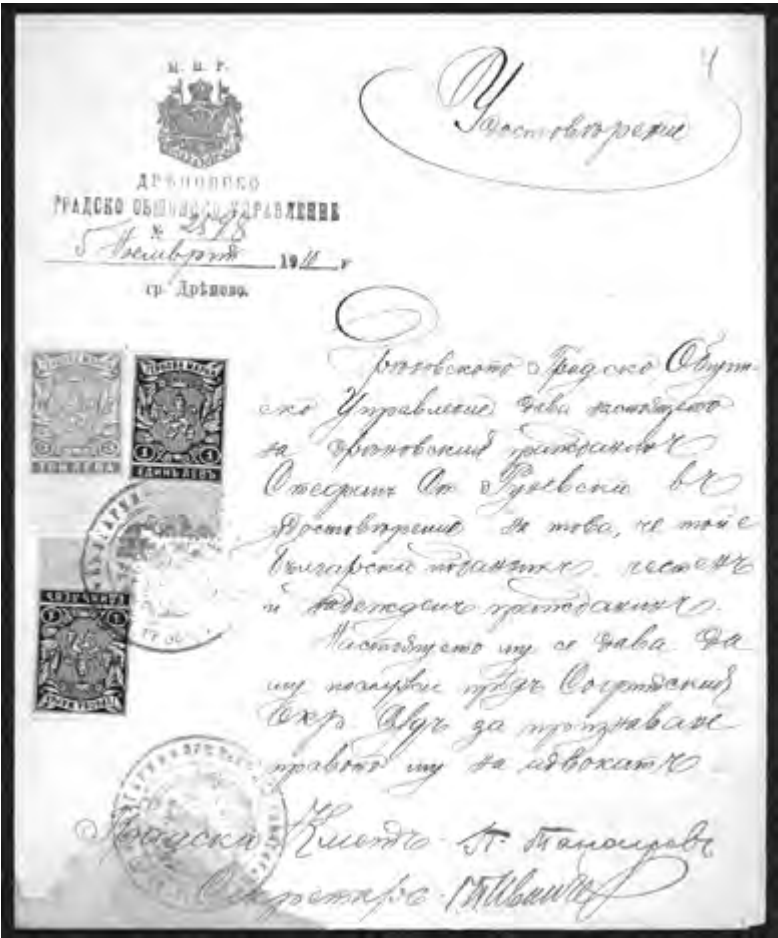 4
Удостовѣрение
М. В. Р.
ДРѢНОВСКО
ГРАДСКО ОБЩИНСКО УПРАВЛЕНИЕ
№ 2598
5 Ноемврий 1910 г
гр. Дрѣново.
Дрѣновското Градско Общин-
ско Управление дава настоящето
на дрѣновский гражданинъ
Ат. Руневски въ
Достовѣрение на това, че той е
Български поданикъ, честенъ
и надежденъ гражданинъ.
Настоящето му се дава да
му послужи прѣдъ Софийский
Окр. Сѫдъ за признаване
правото му на адвокатъ
ТРИ ЛЕВА
ЕДИНЪ ЛЕВЪ
ЕДИНЪ ЛЕВЪ
Градски Кметъ
Секретарь